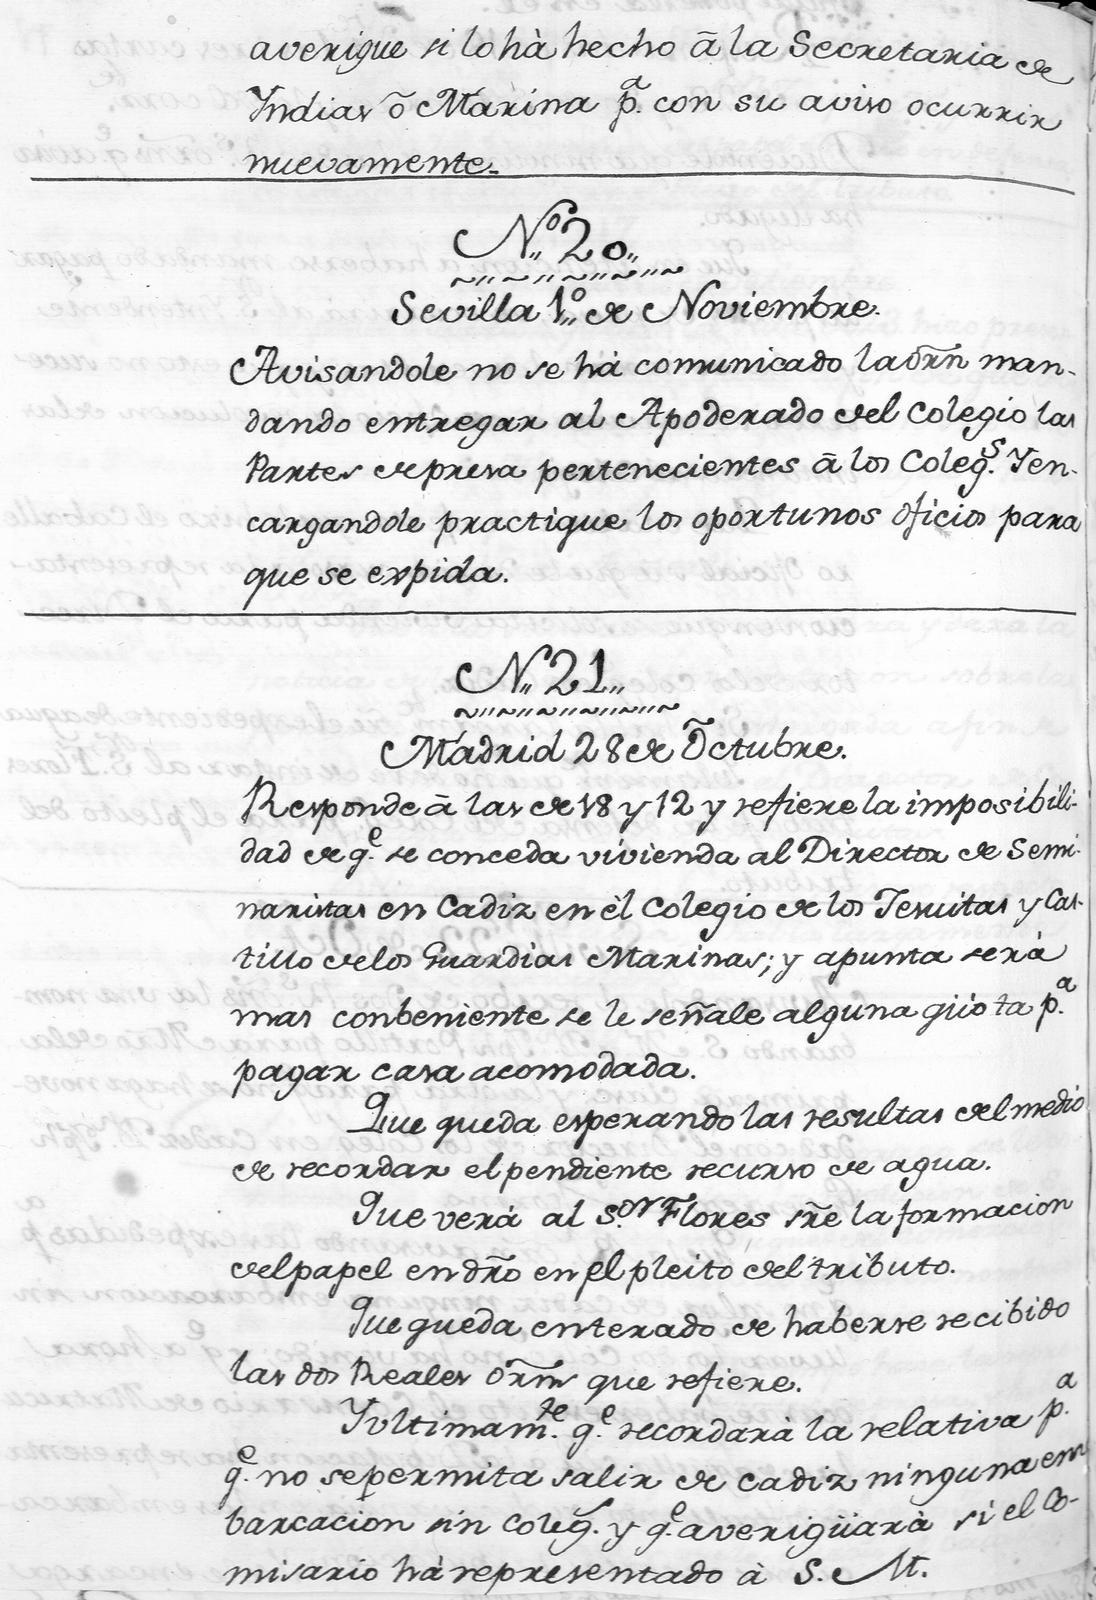 averigue si lo hà hecho ã la Secretaria de
Yndias õ Marina p.ª con su aviso ocurrir
nuevamente.
N.º 20,,
Sevilla 1.º de Noviembre.
Avisandole no se há comunicado la õrn man-
dando entregar al Apoderado del Colegio las
Partes de presa pertenecientes ã los Coleg.s Yen-
cargandole practique los oportunos oficios para
que se expida.
N,, 21,,
Madrid 28 de Õctubre.
Responde ã las de 18 y 12 y refiere la imposibili-
dad de q.e se conceda vivienda al Director de Semi-
naristas en Cadiz en él Colegio de los Jesuitas y Cas-
tillo de los Guardias Marinas; y apunta será
mas conbeniente se le señale alguna qüota p.ª
pagar casa acomodada.
Que queda esperando las resultas del medio
de recordar el pendiente recurso de agua.
Que verá al S.or Flores sr̃e la formacion
del papel en dr̃o en el pleito del tributo.
Que queda enterado de haberse recibido
las dos Reales Õrns que refiere.
Yultimam.te q.e recordará la relativa p.ª
q.e no se permita salir de Cadiz ninguna em
barcacion sin Coleg.s y q.e averigüará si el Co-
misario há representado à S. M.